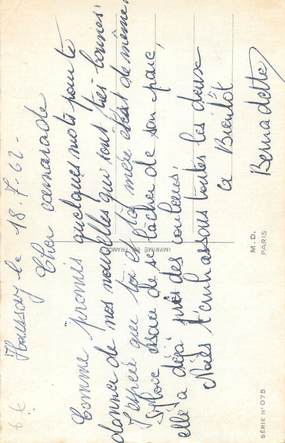 Houssay le 18-7-62.
Cher camarade
Comme promis quelques mots pour te
donner de mes nouvelles qui sont très bonnes.
J'espère que toi et ta mère étant de même.
Sylvie essaie de se lâcher de son parc,
elle a déjà pris des couleurs.
t'embrassons toutes les deux
a Bientôt
Bernadette
IMPRIMÉ EN FRANCE
M.D.
PARIS
SÉRIE N° 075